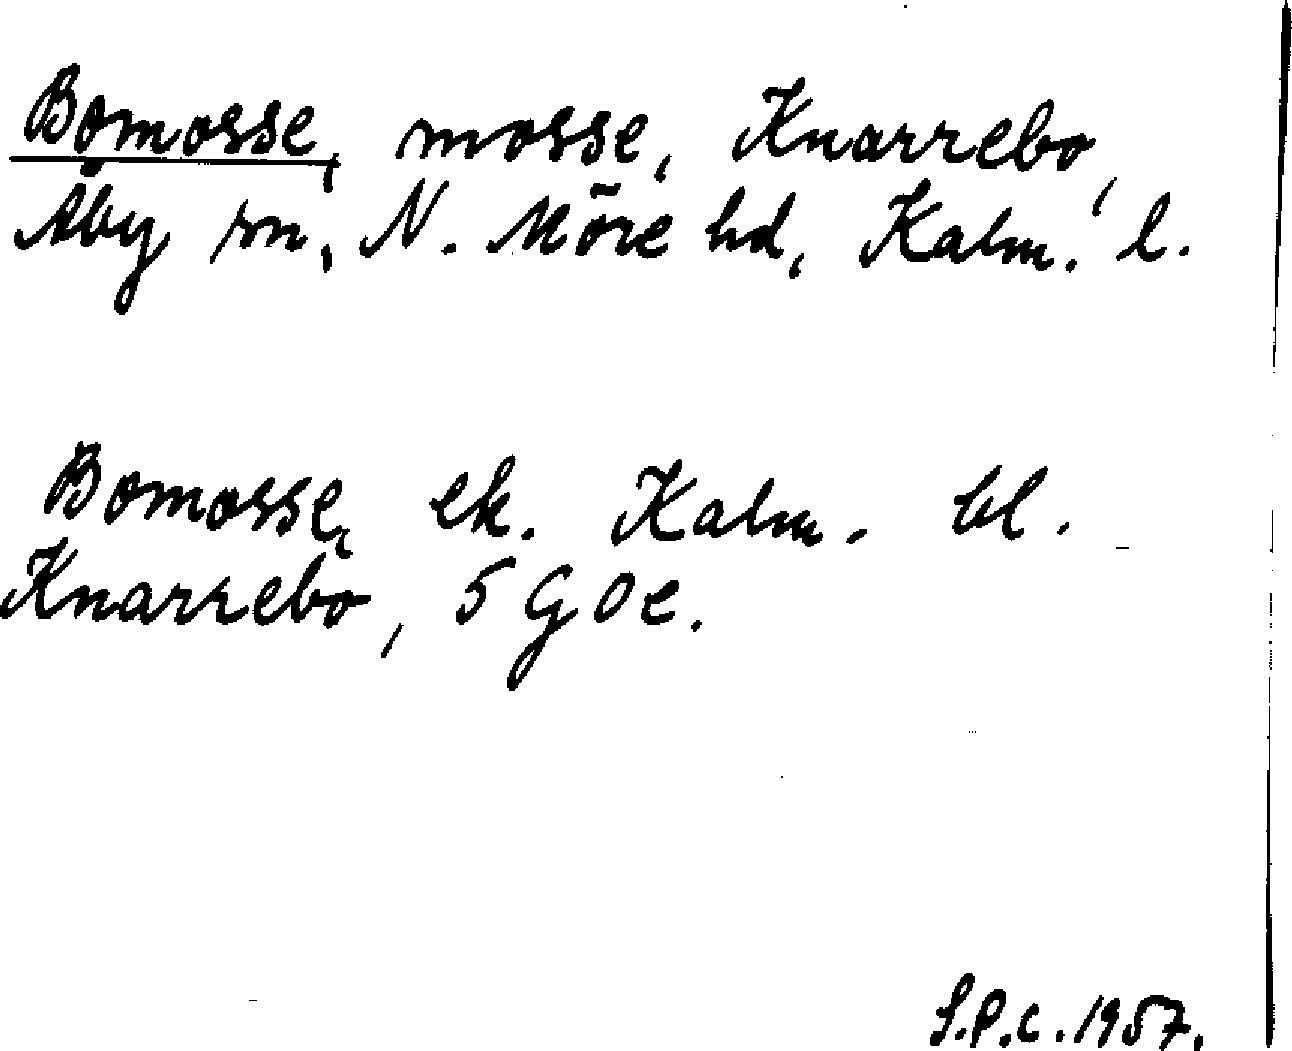 Bomosse, mosse, Knarrebo,
Åby sn, N. Möre hd, Kalm. l.
Bomosse, ek. Kalm. bl.
Knarrebo, 5 G 0 e.
S.P.C. 1957.